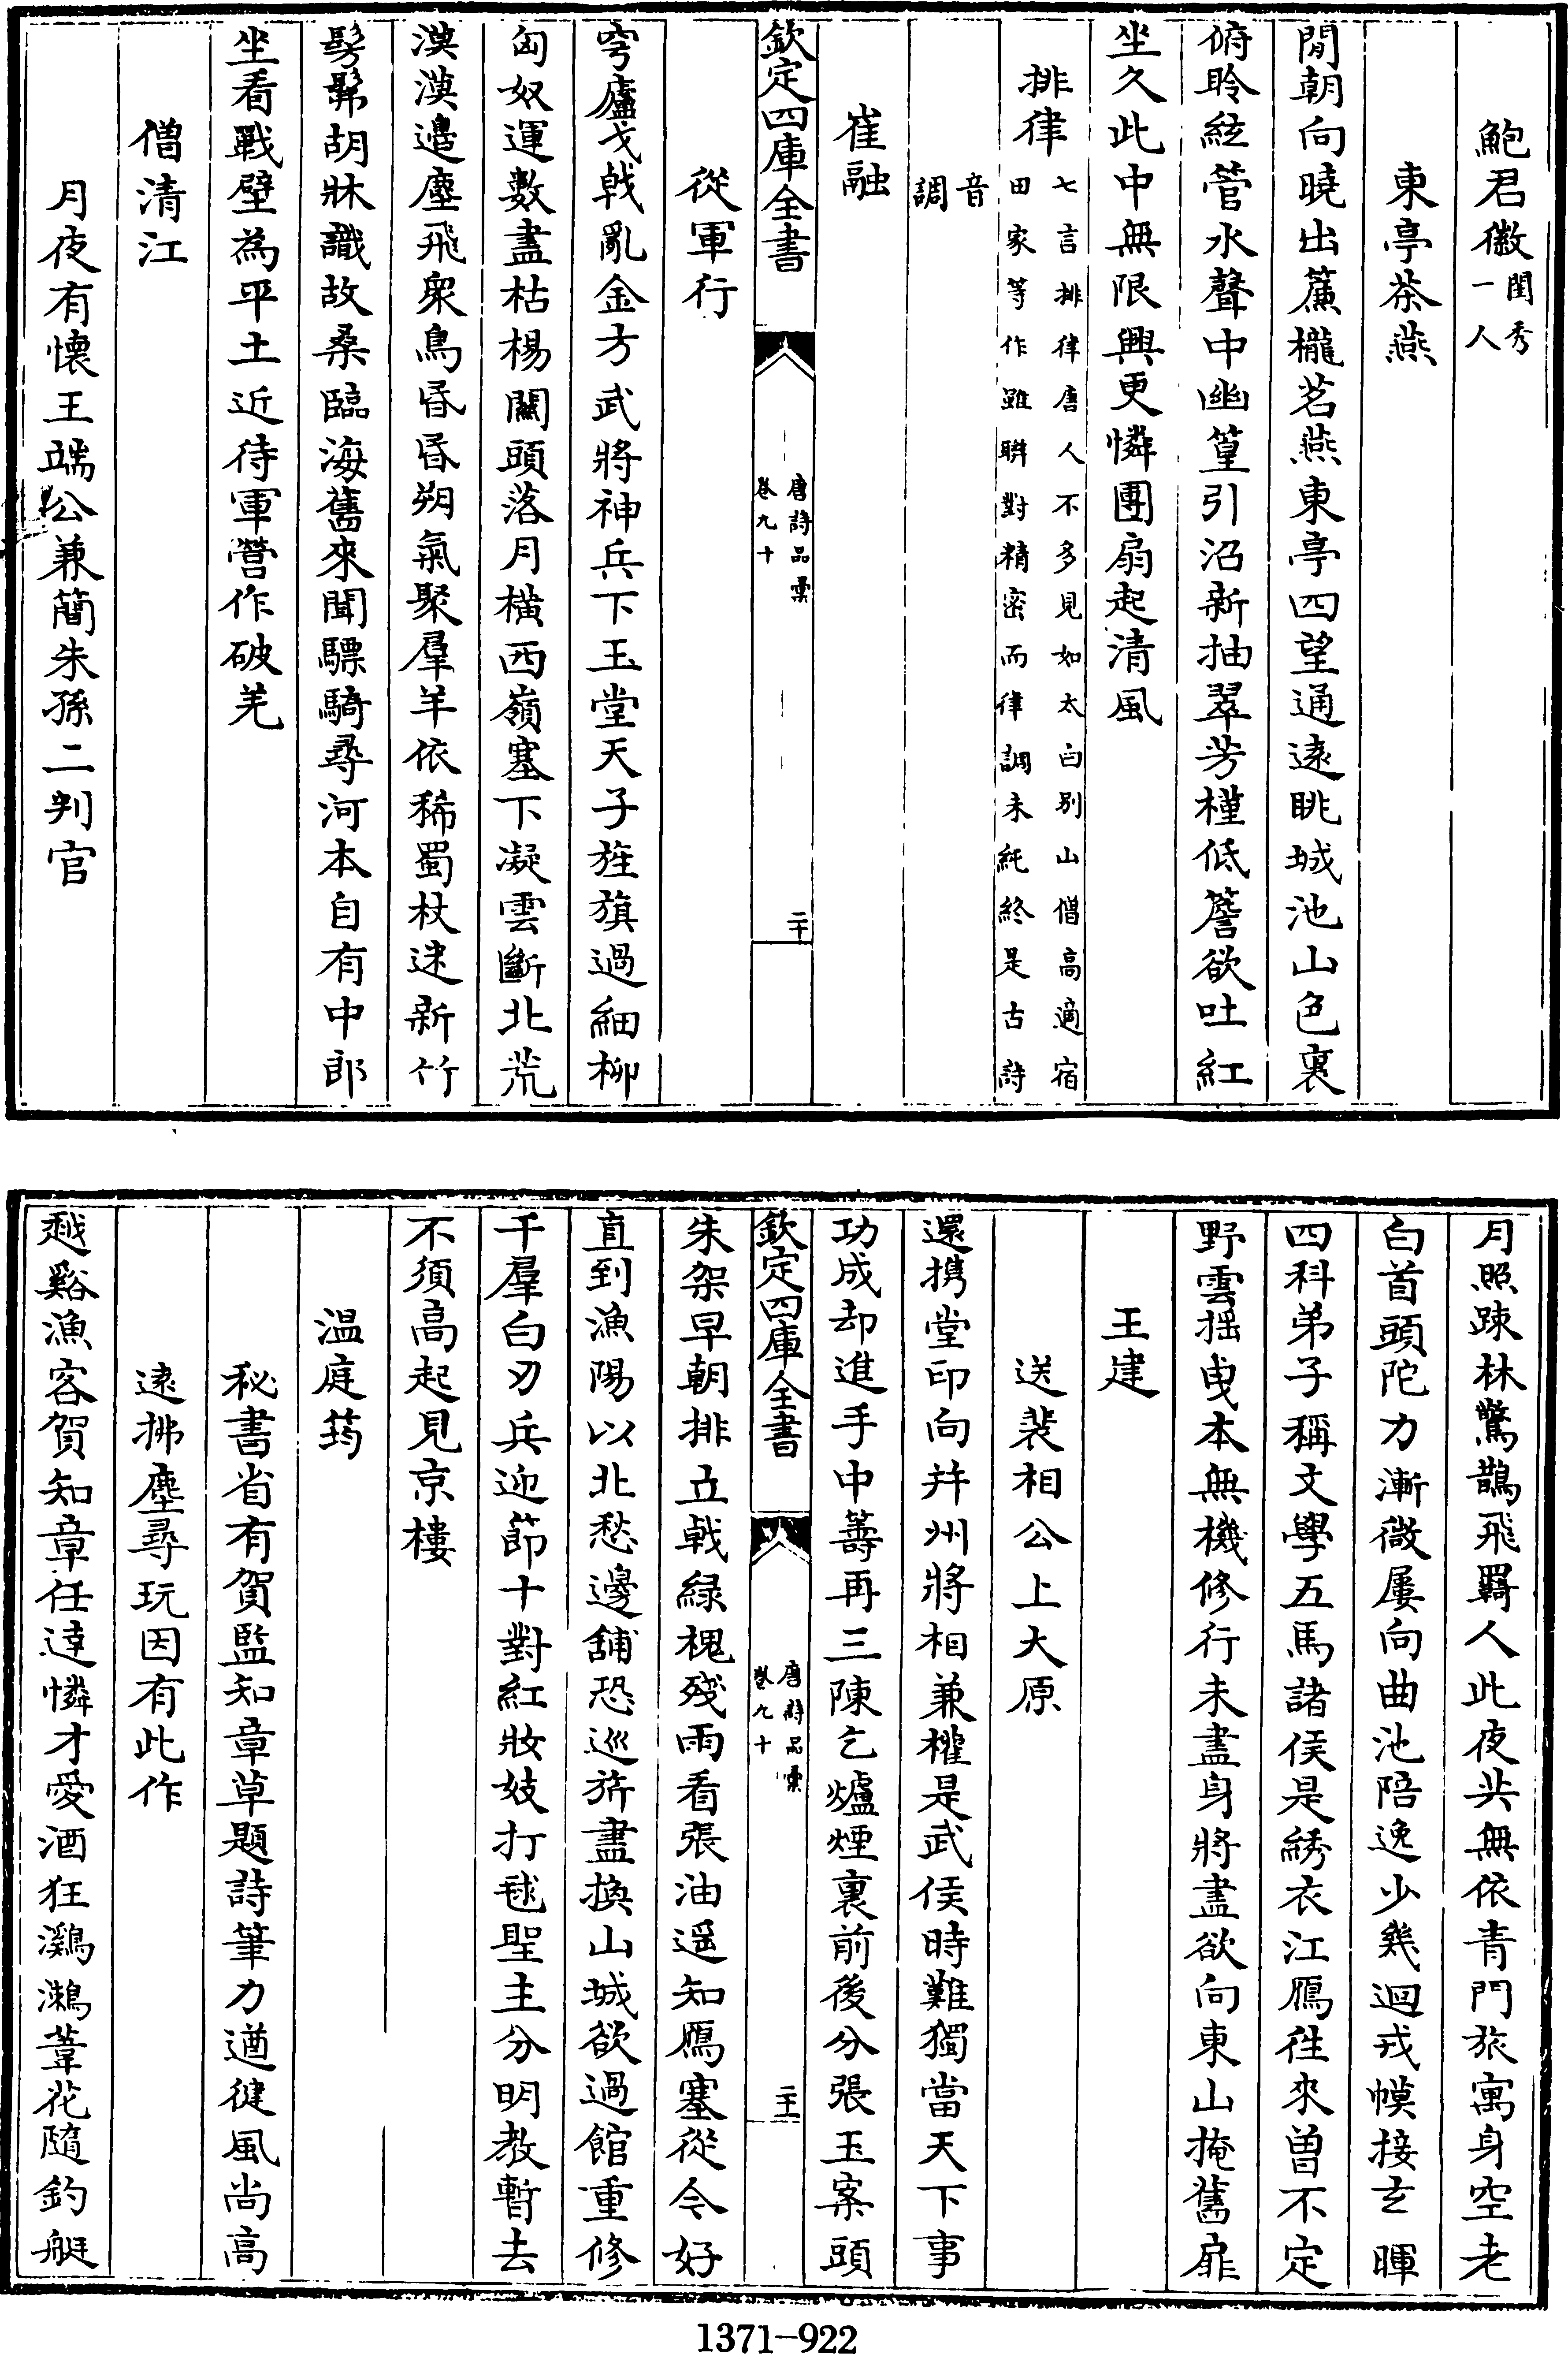 鮑君徽閨秀一人
東亭茶燕
閒朝向曉出簾櫳茗燕東亭四望通遠眺城池山色裏
俯聆絃管水聲中幽篁引沼新抽翠芳槿低簷欲吐紅
坐久此中無限興更憐團扇起清風
排律七言排律唐人不多見如太白别山僧高適宿田家等作雖聨對精密而律調未純終是古詩
音調
崔融
欽定四庫全書
唐詩品彙
卷九十
二十
從軍行
穹廬戈戟亂金方武將神兵下玉堂天子旌旗過細柳
匈奴運數盡枯楊關頭落月橫西嶺塞下凝雲斷北荒
漠漠邊塵飛衆鳥昏昏朔氣聚羣羊依稀蜀杖迷新竹
髣髴胡牀識故桑臨海舊來聞驃騎尋河本自有中郎
坐看戰壁為平土近待軍營作破羌
僧清江
月夜有懷王端公兼簡朱孫二判官
月照疎林驚鵲飛羇人此夜共無依青門旅寓身空老
白首頭陀力漸微屢向曲池陪逸少幾迴戎幙接玄暉
四科弟子稱文學五馬諸侯是綉衣江鴈徃來曽不定
野雲揺曵本無機修行未盡身將盡欲向東山掩舊扉
王建
送裴相公上大原
還携堂印向并州將相兼權是武侯時難獨當天下事
功成却進手中籌再三陳乞爐煙裏前後分張玉案頭
欽定四庫全書
唐詩品彙
卷九十
二十一
朱架早朝排立戟緑槐殘雨看張油遥知鴈塞從今好
直到漁陽以北愁邊舖恐巡旂盡換山城欲過館重修
千羣白刃兵迎節十對紅妝妓打毬聖主分明教暫去
不須高起見京樓
温庭筠
秘書省有賀監知章草題詩筆力遒健風尚高
遠拂塵尋玩因有此作
越谿漁客賀知章任達憐才愛酒狂鸂鶒葦花隨釣艇
1371-922